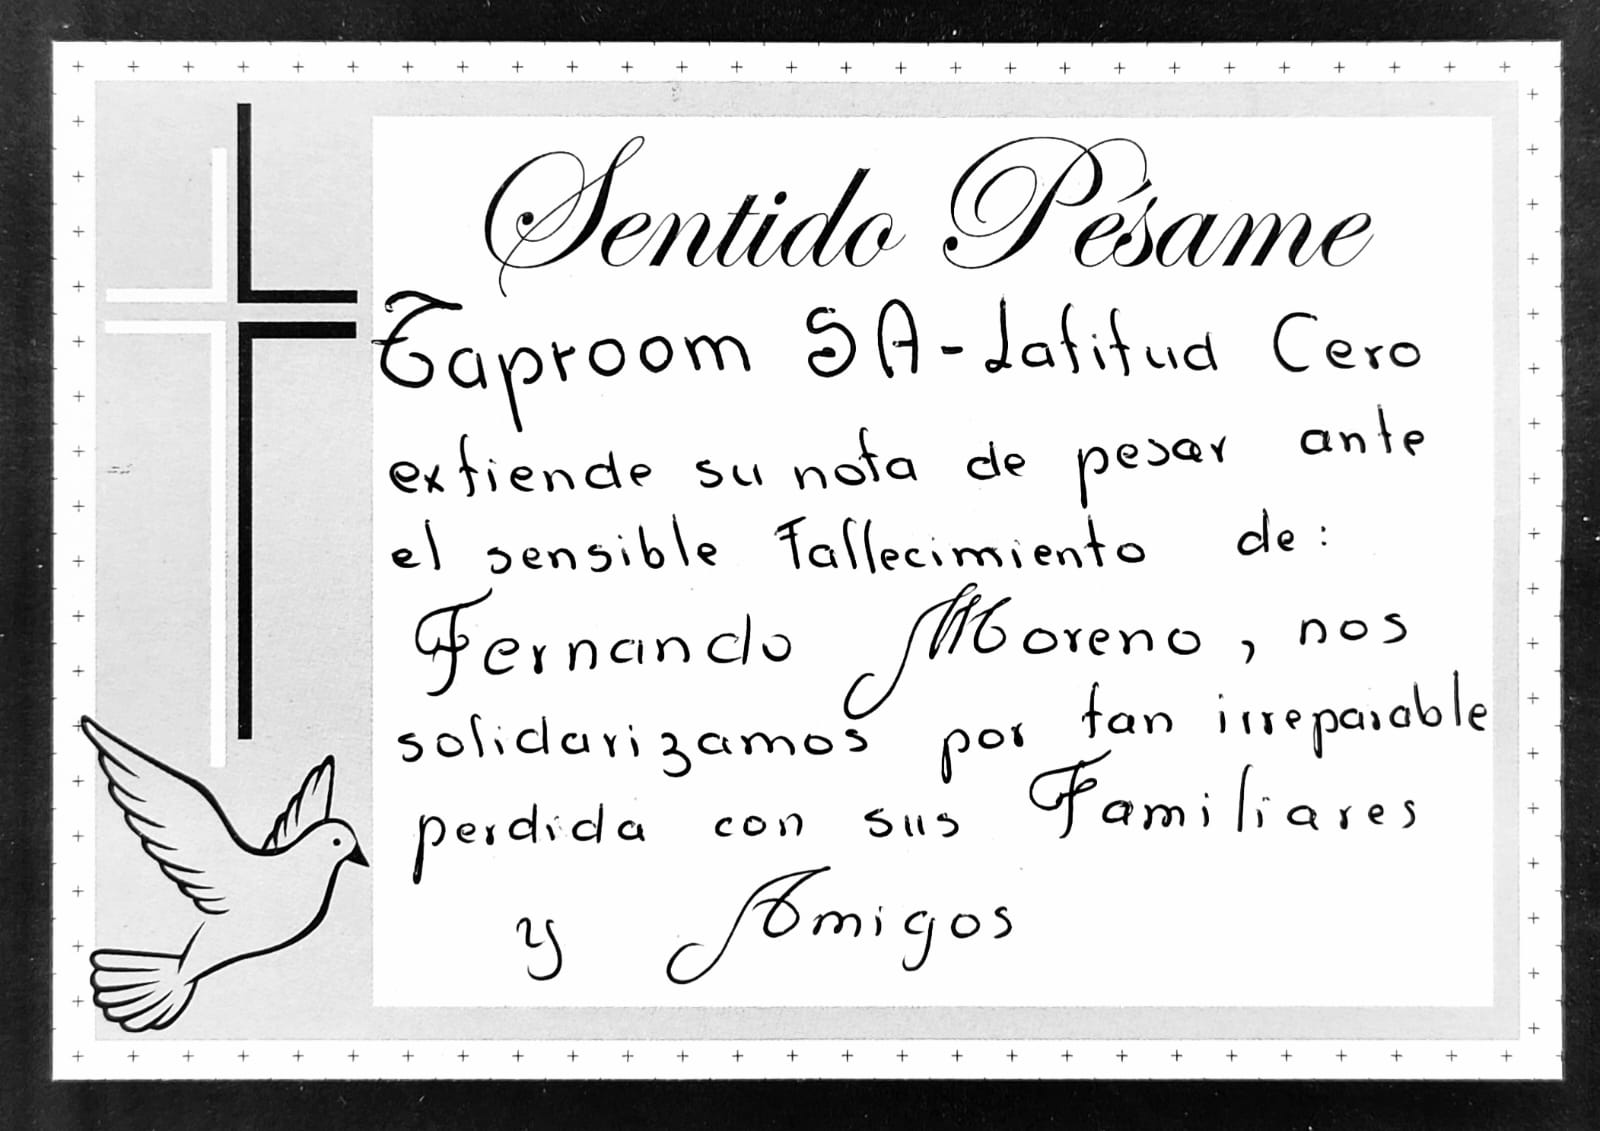 Sentido Pésame
Taproom SA-Latitud Cero
extiende su nota de pesar ante
el sensible Fallecimiento de:
Fernando Moreno, nos
solidarizamos por tan irreparable
perdida con sus Familiares
y Amigos